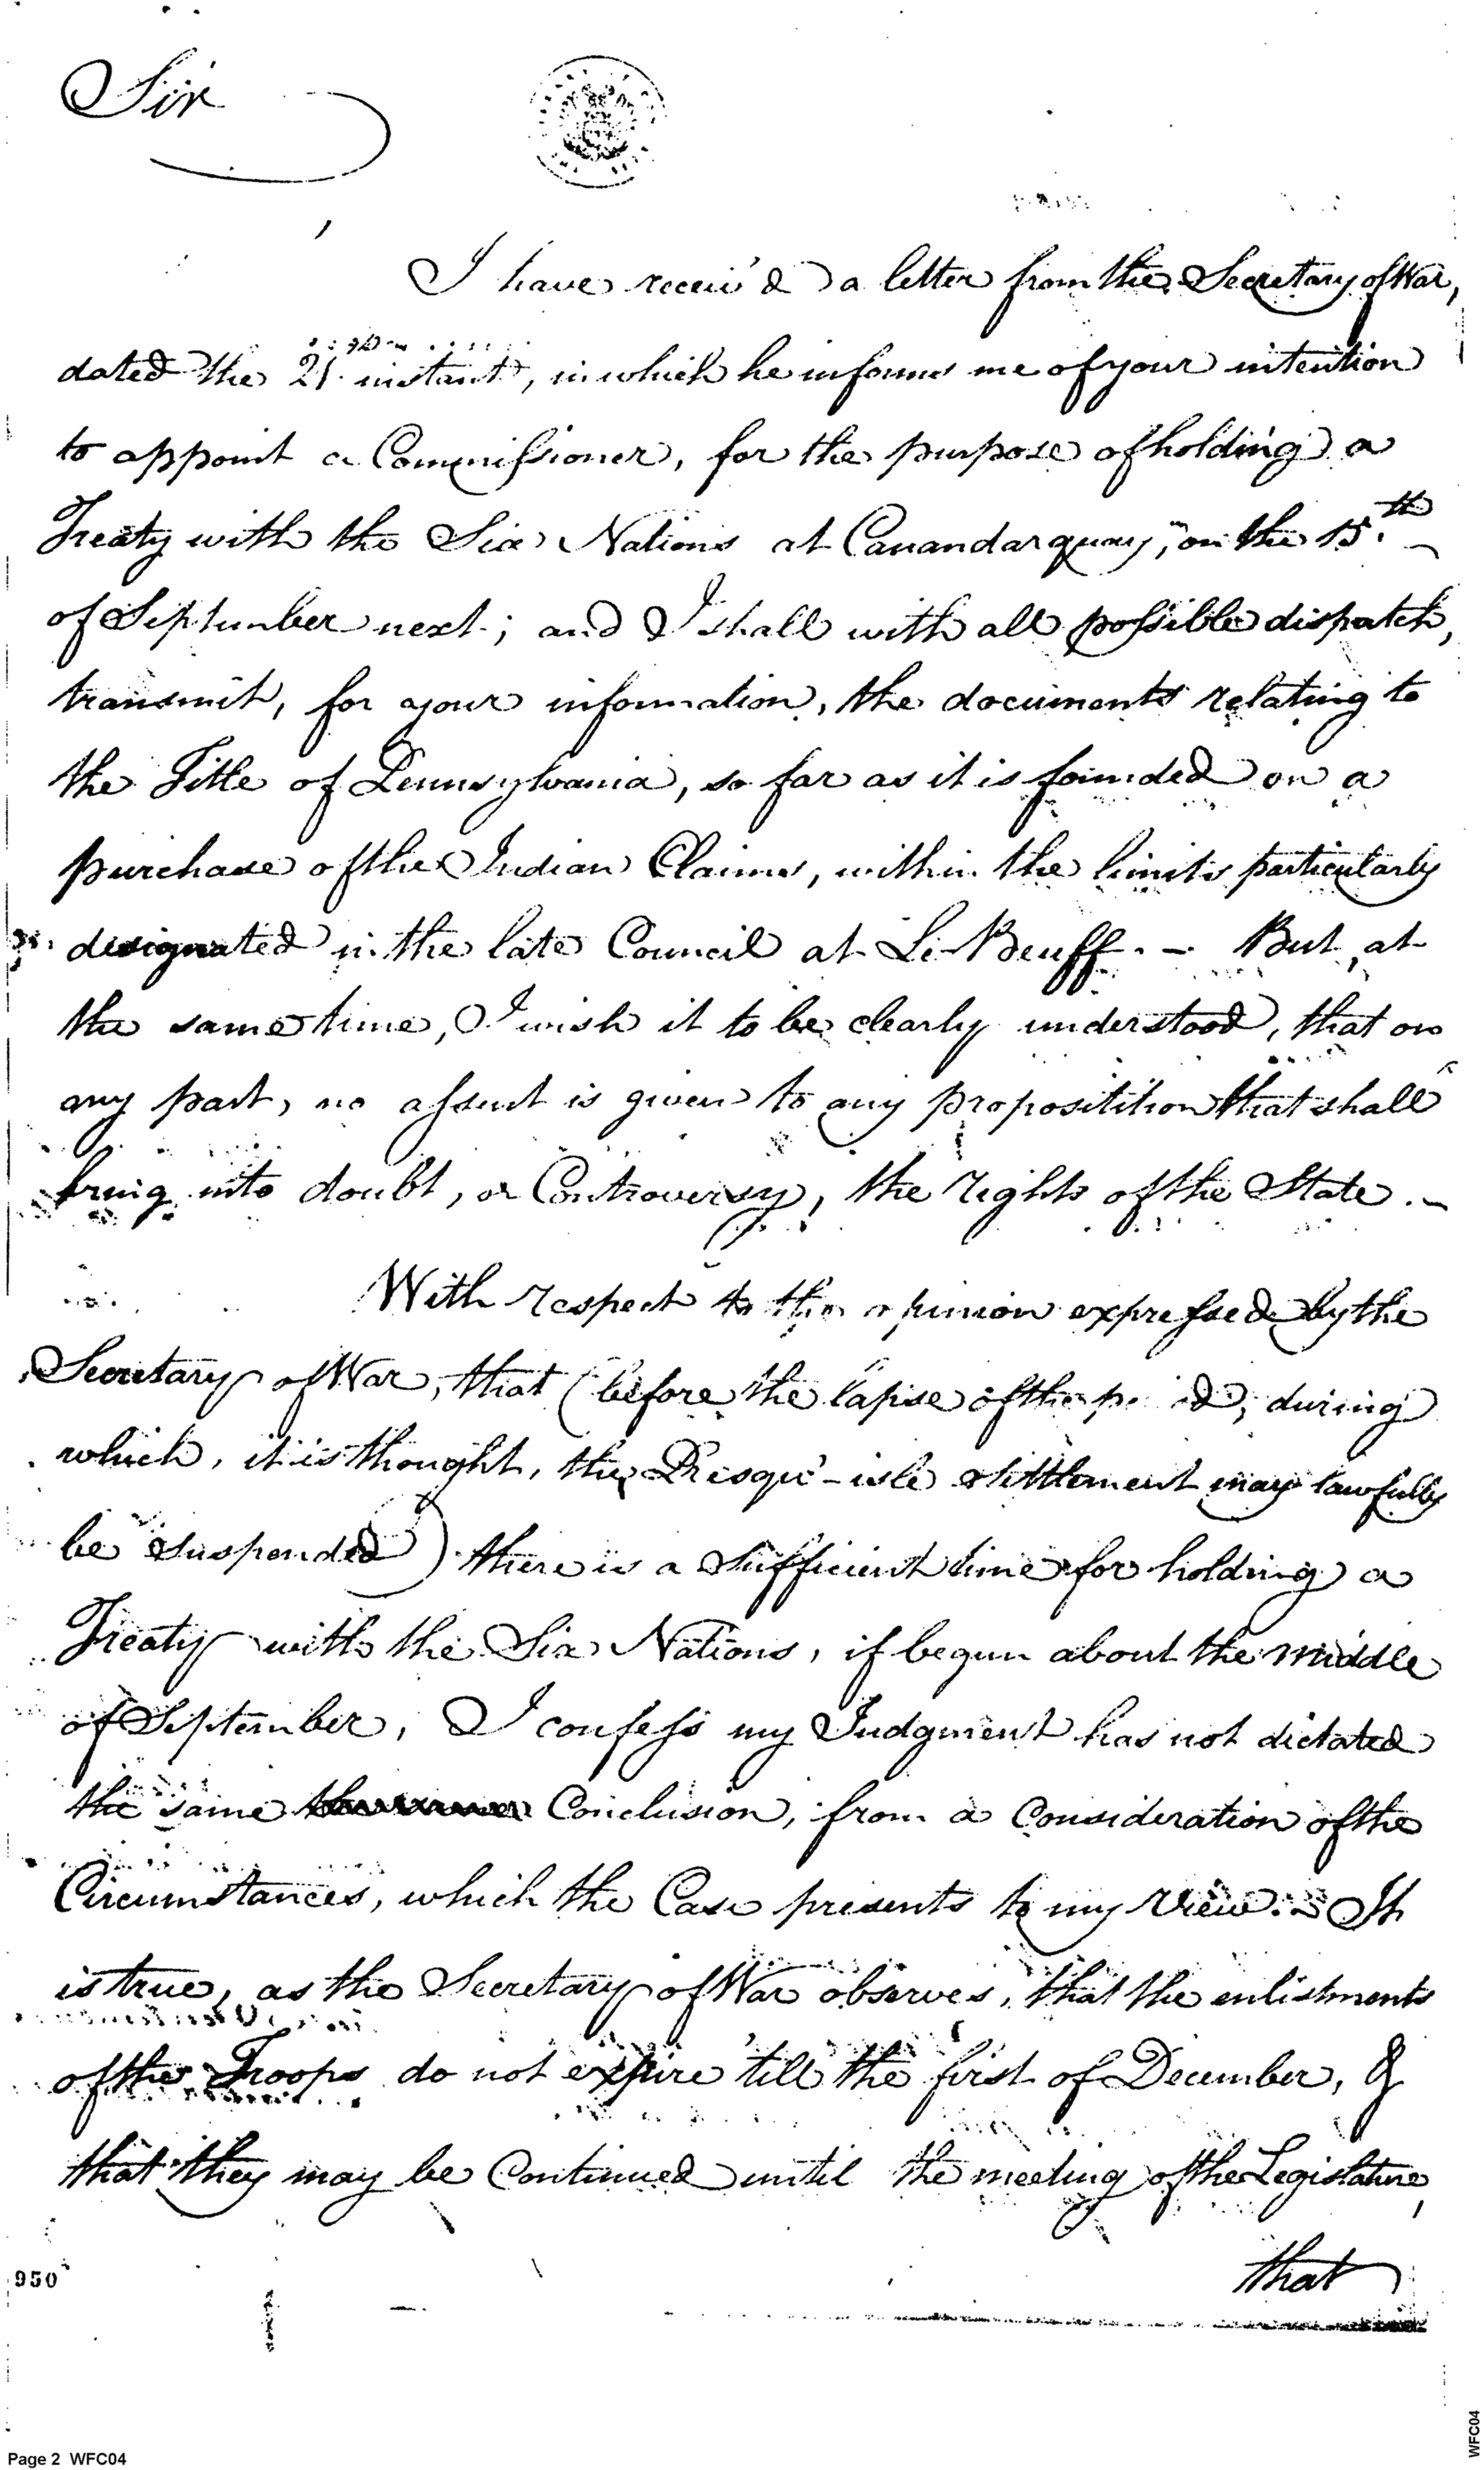 Sir
I have receiv'd a letter from the Secretary of War,
dated the 21. instant, in which he informs me of your intention
to appoint a Commissioner, for the purpose of holding a
Treaty with the Six Nations at Canandarquay, on the 15.th
of September next; and I shall with all possible dispatch,
transmit, for your information, the documents relating to
the Title of Pennsylvania, so far as it is founded on a
purchase of the Indian Claims, within the limits particularly
designated in the late Council at Le-Beuff. – But, at
the same time, I wish it to be clearly understood, that on
my part, no assent is given to any proposition that shall
bring into doubt, or Controversy, the rights of the State. –
With respect to the opinion expressed by the
Secretary of War, that (before the lapse of the , during
which, it is thought, the Presqu'-isle settlement may lawfully
be suspended) there is a sufficient time for holding a
Treaty with the Six Nations, if begun about the middle
of September, I confess my Judgment has not dictated
the same Conclusion, from a Consideration of the
Circumstances, which the Case presents to my view. – It
is true, as the Secretary of War observes, that the enlistments
of the Troops do not expire 'till the first of December, &
that they may be Continued until the meeting of the Legislature,
that
950
Page 2 WFC04
WFC04